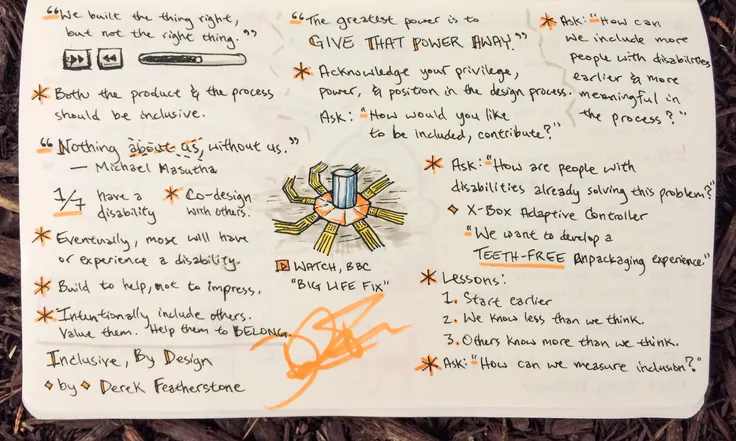 "We built the thing right,
but not the right thing."
* Both the product & the process
should be inclusive.
"Nothing about us, without us."
— Michael Masutha
1/7 have a
disability
* Co-design
with others.
* Eventually, most will have
or experience a disability.
* Build to help, not to impress.
* Intentionally include others.
Value them. Help them to BELONG.
Inclusive, By Design
by Derek Featherstone
"The greatest power is to
GIVE THAT POWER AWAY."
* Acknowledge your privilege,
power, & position in the design process.
Ask: "How would you like
to be included, contribute?"
WATCH, BBC
"BIG LIFE FIX"
* Ask: "How can
we include more
people with disabilities
earlier & more
meaningful in
the process?"
* Ask: "How are people with
disabilities already solving this problem?"
X-Box Adaptive Controller
"We want to develop a
TEETH-FREE unpackaging experience."
* Lessons:
1. Start earlier
2. We know less than we think.
3. Others know more than we think.
* Ask: "How can we measure inclusion?"